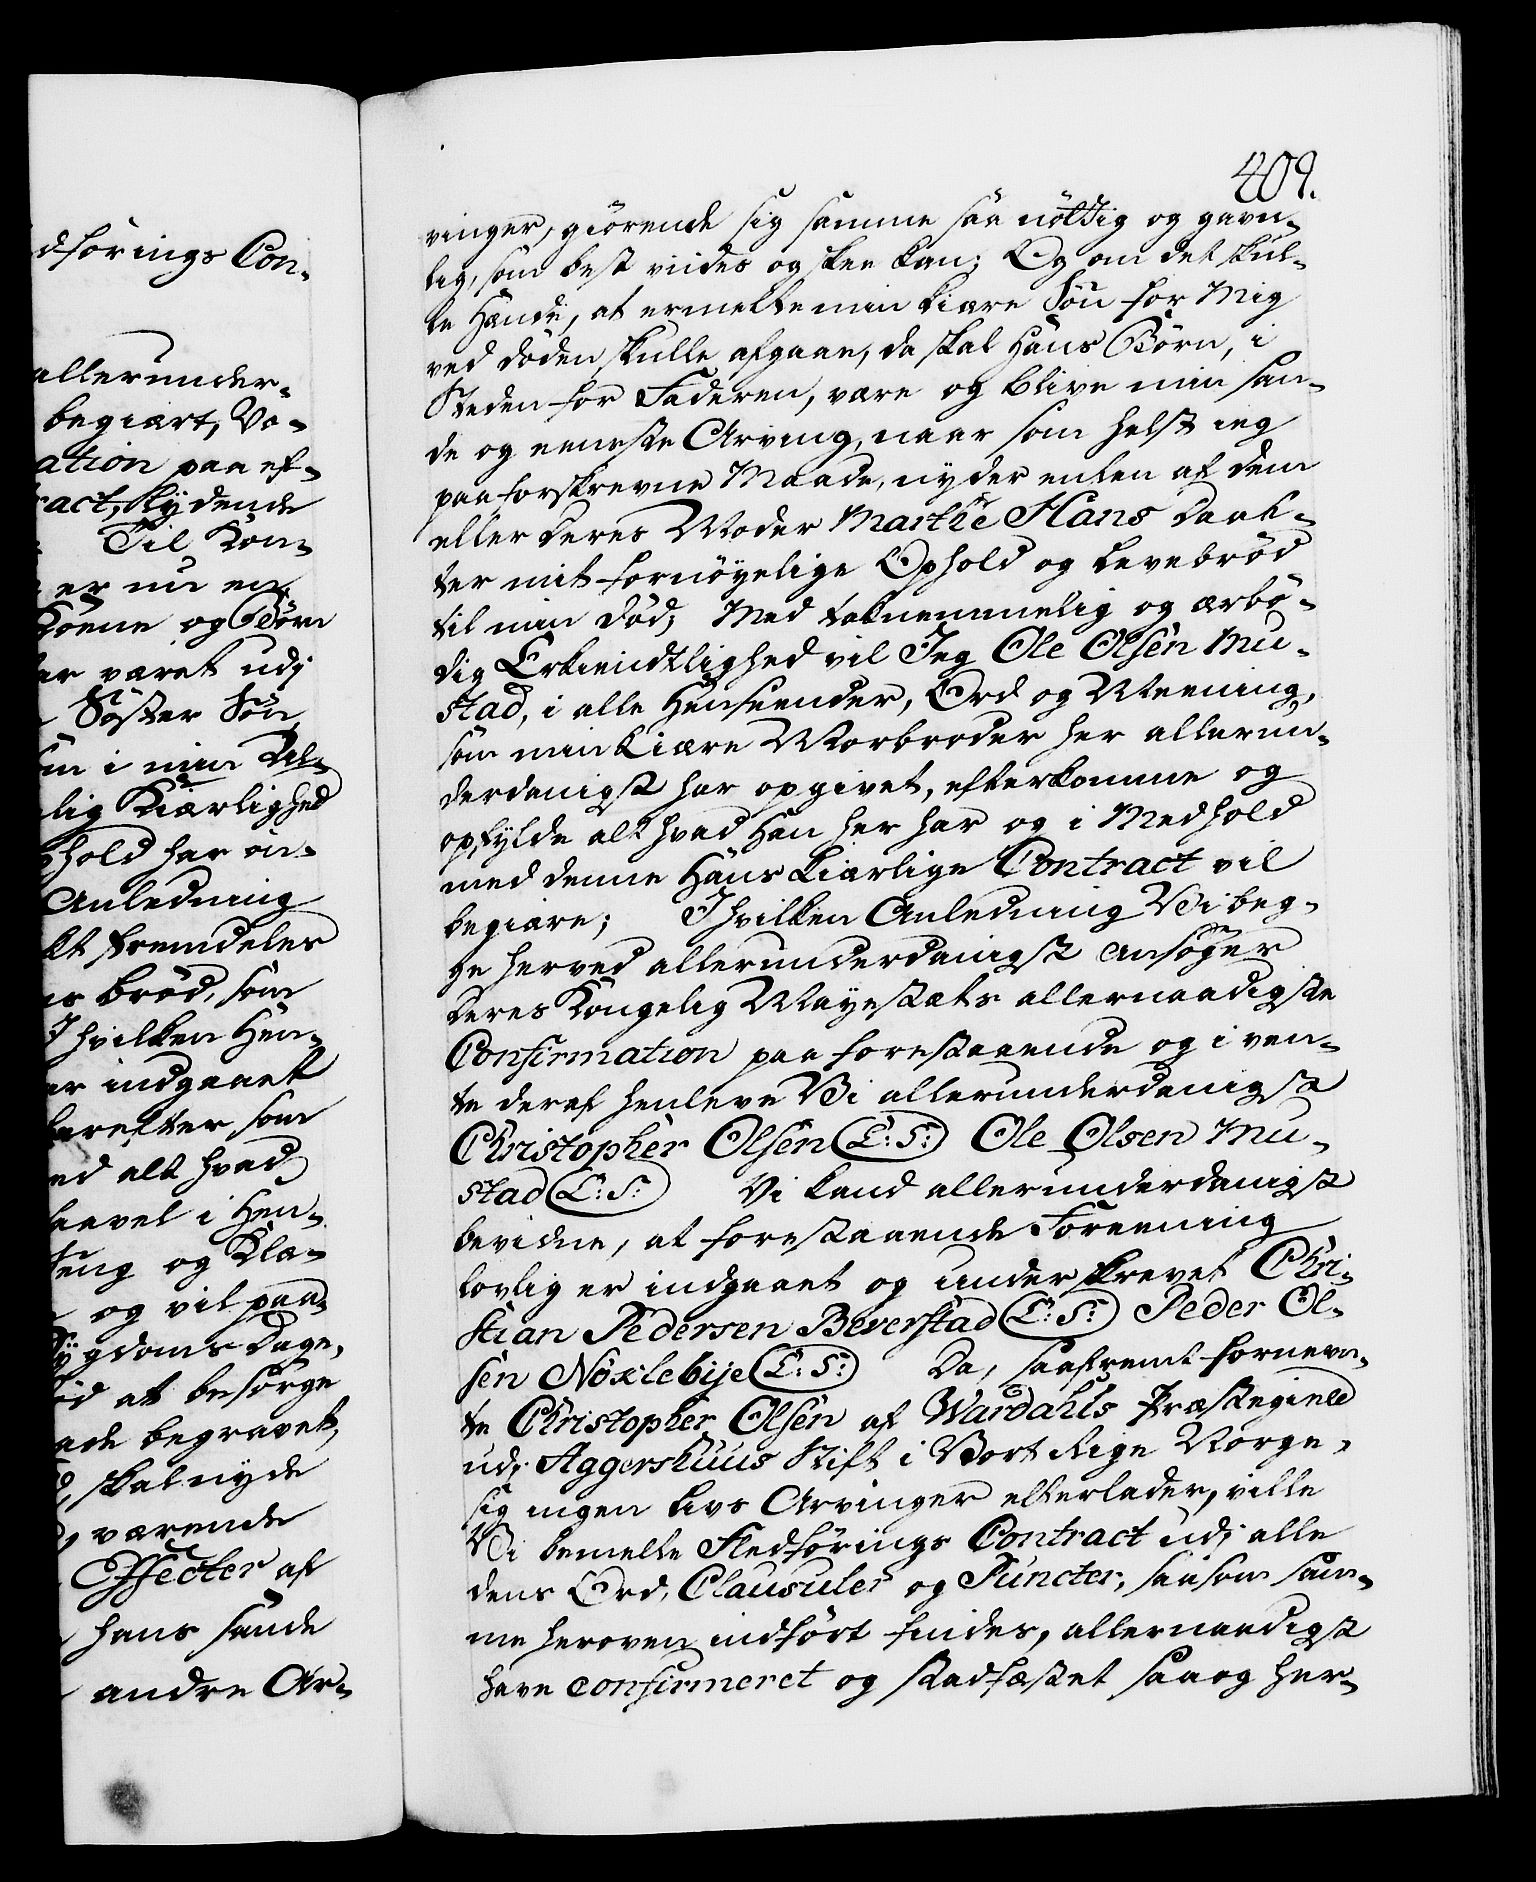 dförings Con-
allerunder-
begiært, Vo-
ation paa ef-
ract, lÿdende
Til Kon-
er nu en
Koene og Börn
er været udj
Söster Sön
i min Al-
lig Kiærlighed
hold har ön-
Anledning
fremdeles
bröd, som
J hvilken Hen-
er indgaaet
derefter som
ed alt hvad
saavel i Hen-
Seng og Klæ-
og vil paa-
Sÿgdoms Dage,
id at besörge
ade begravet,
skal nÿde
værende
Effecter af
hans sande
andre Ar-
409.
vinger, giörende sig samme saa nöttig og gavn-
lig, som best viides og skee kan; Og om det skul-
le Hænde, at ermelte min kiære Sön for Mig
ved döden skulle afgaae, da skal Hans Börn, i
Steden for Faderen, være og blive min san-
de og eeneste Arving, naar som helst ieg
paa forskrevne Maade, nÿder enten af dem
eller deres Moder Marthe Hans Daat-
ter mit fornöÿelige Ophold og levebröd
til min död; Med taknemmelig og ærbö-
dig Erkiendtlighed vil Jeg Ole Olsen Mu-
stad, i alle Henseender, Ord og Meening,
som min kiære Morbroder her allerun-
derdanigst har opgivet, efterkomme og
opfÿlde alt hvad Han her har og i Medhold
med denne Hans kiærlige Contract vil
begiære; J hvilken Anledning Vi beg-
ge herved allerunderdanigst ansöger
deres Kongelig Maÿestæts allernaadigste
Confirmation paa forestaaende og i ven-
te deraf henleve Vi allerunderdanigst
Christopher Olsen (L: S:) Ole Olsen Mu-
stad (L: S:) Vi kand allerunderdanigst
bevidne, at forestaaende Foreening
lovlig er indgaaet og underskrevet Chri-
stian Pedersen Beverstad (L: S:) Peder Ol-
sen Nöxlebÿe (L: S:) Da, saafremt fornevn-
te Christopher Olsen af Wardahls Præstegield
udj Aggershuus Stift i Vort Rige Norge,
sig ingen livs Arvinger efterlader, ville
Vi bemelte Fledförings Contract udj alle
dens Ord, Clausuler og Puncter, saasom sam-
me heroven indfört findes, allernaadigst
have confirmeret og stadfæstet saa og her-